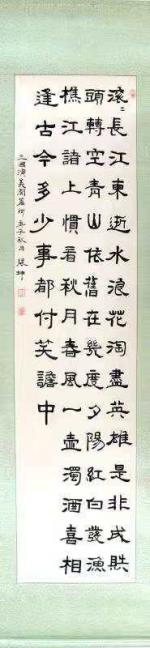 滚〻長江東逝水浪花淘盡英雄是非成敗
頭轉空青山依舊在幾度夕陽紅白髮漁
樵江渚上慣看秋月春風一壺濁酒喜相
逢古今多少事都付笑談中
三國演義開篇詞 子秋月 張